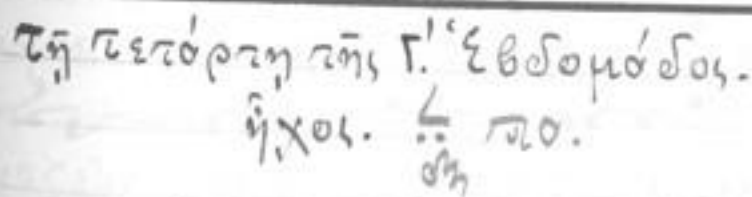 τῇ τετάρτῃ τῆς Γ.' Ἑβδομάδος.
ἦχος. πα.